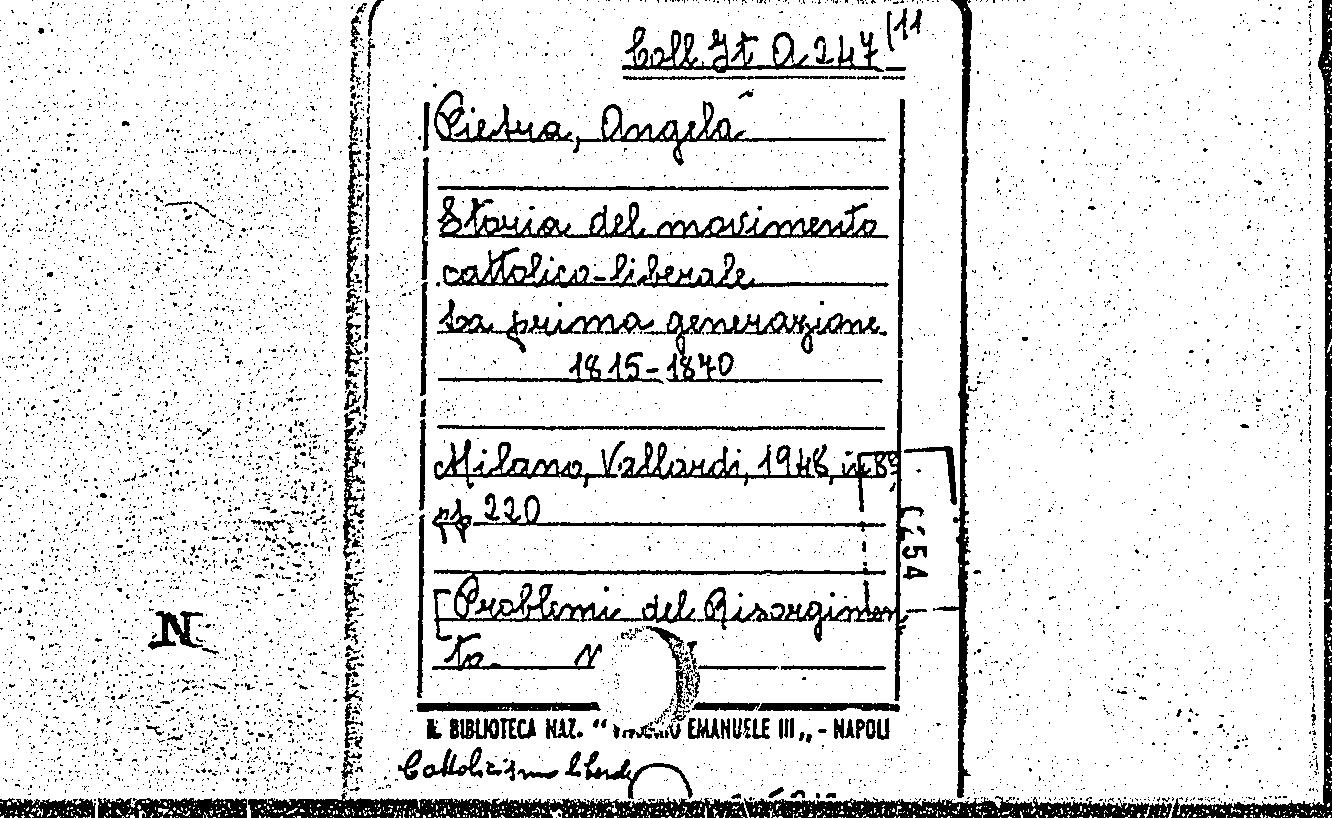 Coll. It. A. 247 (11
Pietra, Angela
Storia del movimento
cattolico-liberale
La prima generazione
1815-1870
Milano, Vallardi, 1948, in 8º,
pp. 220
[Problemi del Risorgimen
to.
BIBLIOTECA NAZ. " EMANUELE III „ - NAPOLI
Cattolicismo liberale
N